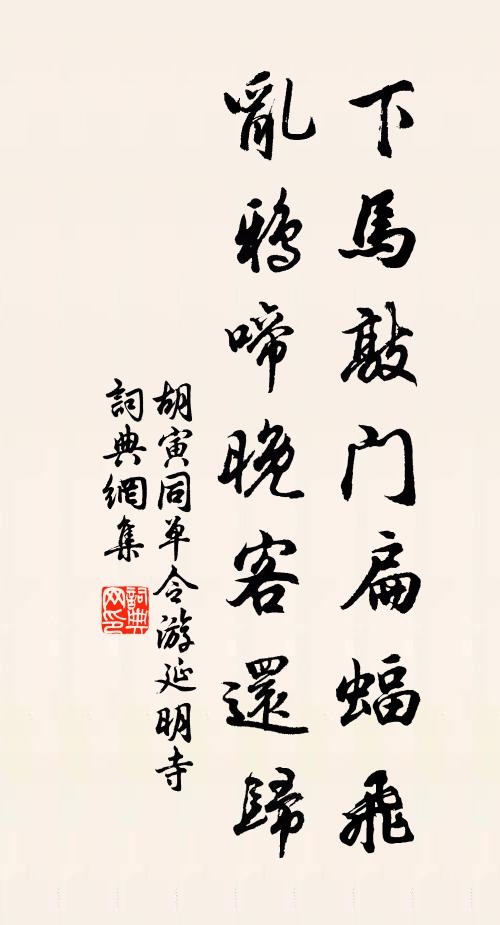 下馬敲门扁蝠飛
亂鴉啼晚客還歸
胡寅同单令游延明寺
詞典網集
詞典网印